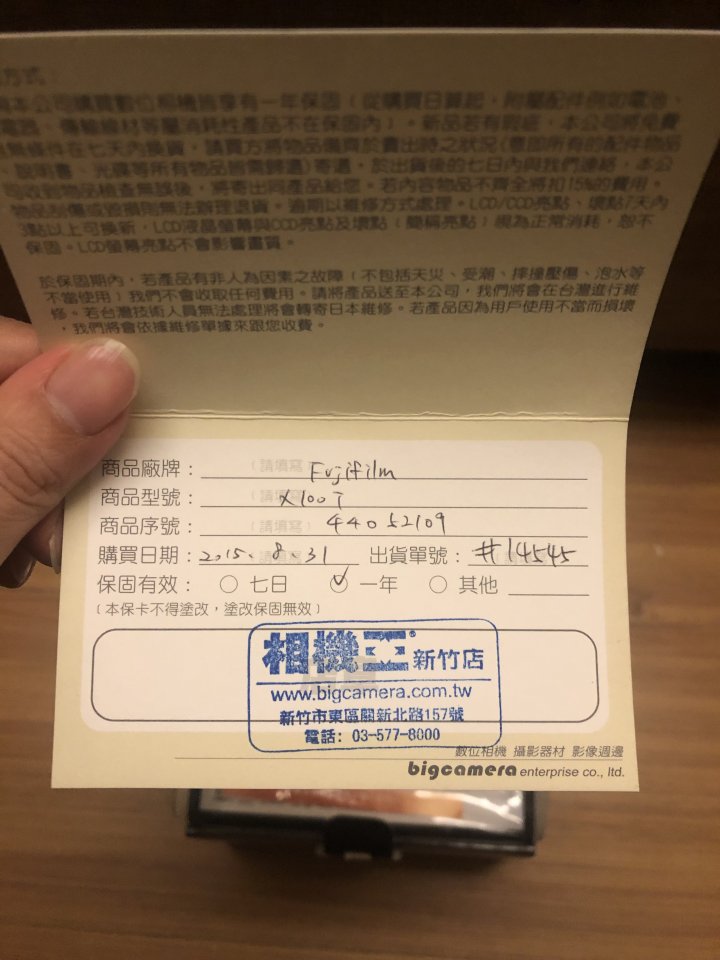 方式：
本公司購買數位相機皆享有一年保固（從購買日算起，附屬配件例如電池、
電器、傳輸線材等屬消耗性產品不在保固內）。新品若有瑕疵，本公司將免費
無條件在七天內換貨，請買方將物品備齊於賣出時之狀況（意即所有的配件物品
、說明書、光碟等所有物品皆需歸還）寄還，於出貨後的七日內與我們連絡，本公
司收到物品檢查無誤後，將寄出同產品給您。若內容物品不齊全將扣15%的費用。
物品刮傷或毀損則無法辦理退貨。逾期以維修方式處理。LCD/CCD亮點、壞點7天內
3點以上可換新，LCD液晶螢幕與CCD亮點及壞點（簡稱亮點）視為正常消耗，恕不
保固。LCD螢幕亮點不會影響畫質。
於保固期內，若產品有非人為因素之故障（不包括天災、受潮、摔撞壓傷、泡水等
不當使用）我們不會收取任何費用。請將產品送至本公司，我們將會在台灣進行維
修。若台灣技術人員無法處理將會轉寄日本維修。若產品因為用戶使用不當而損壞
，我們將會依據維修單據來跟您收費。
商品廠牌：（請填寫） Fujifilm
商品型號：（請填寫） X100T
商品序號：（請填寫） 44052109
購買日期：2015.8.31 出貨單號：#14545
保固有效：○ 七日 ○ ✓ 一年 ○ 其他
（本保卡不得塗改，塗改保固無效）
相機王 新竹店
www.bigcamera.com.tw
新竹市東區關新北路157號
電話：03-577-8000
數位相機 攝影器材 影像週邊
bigcamera enterprise co., ltd.